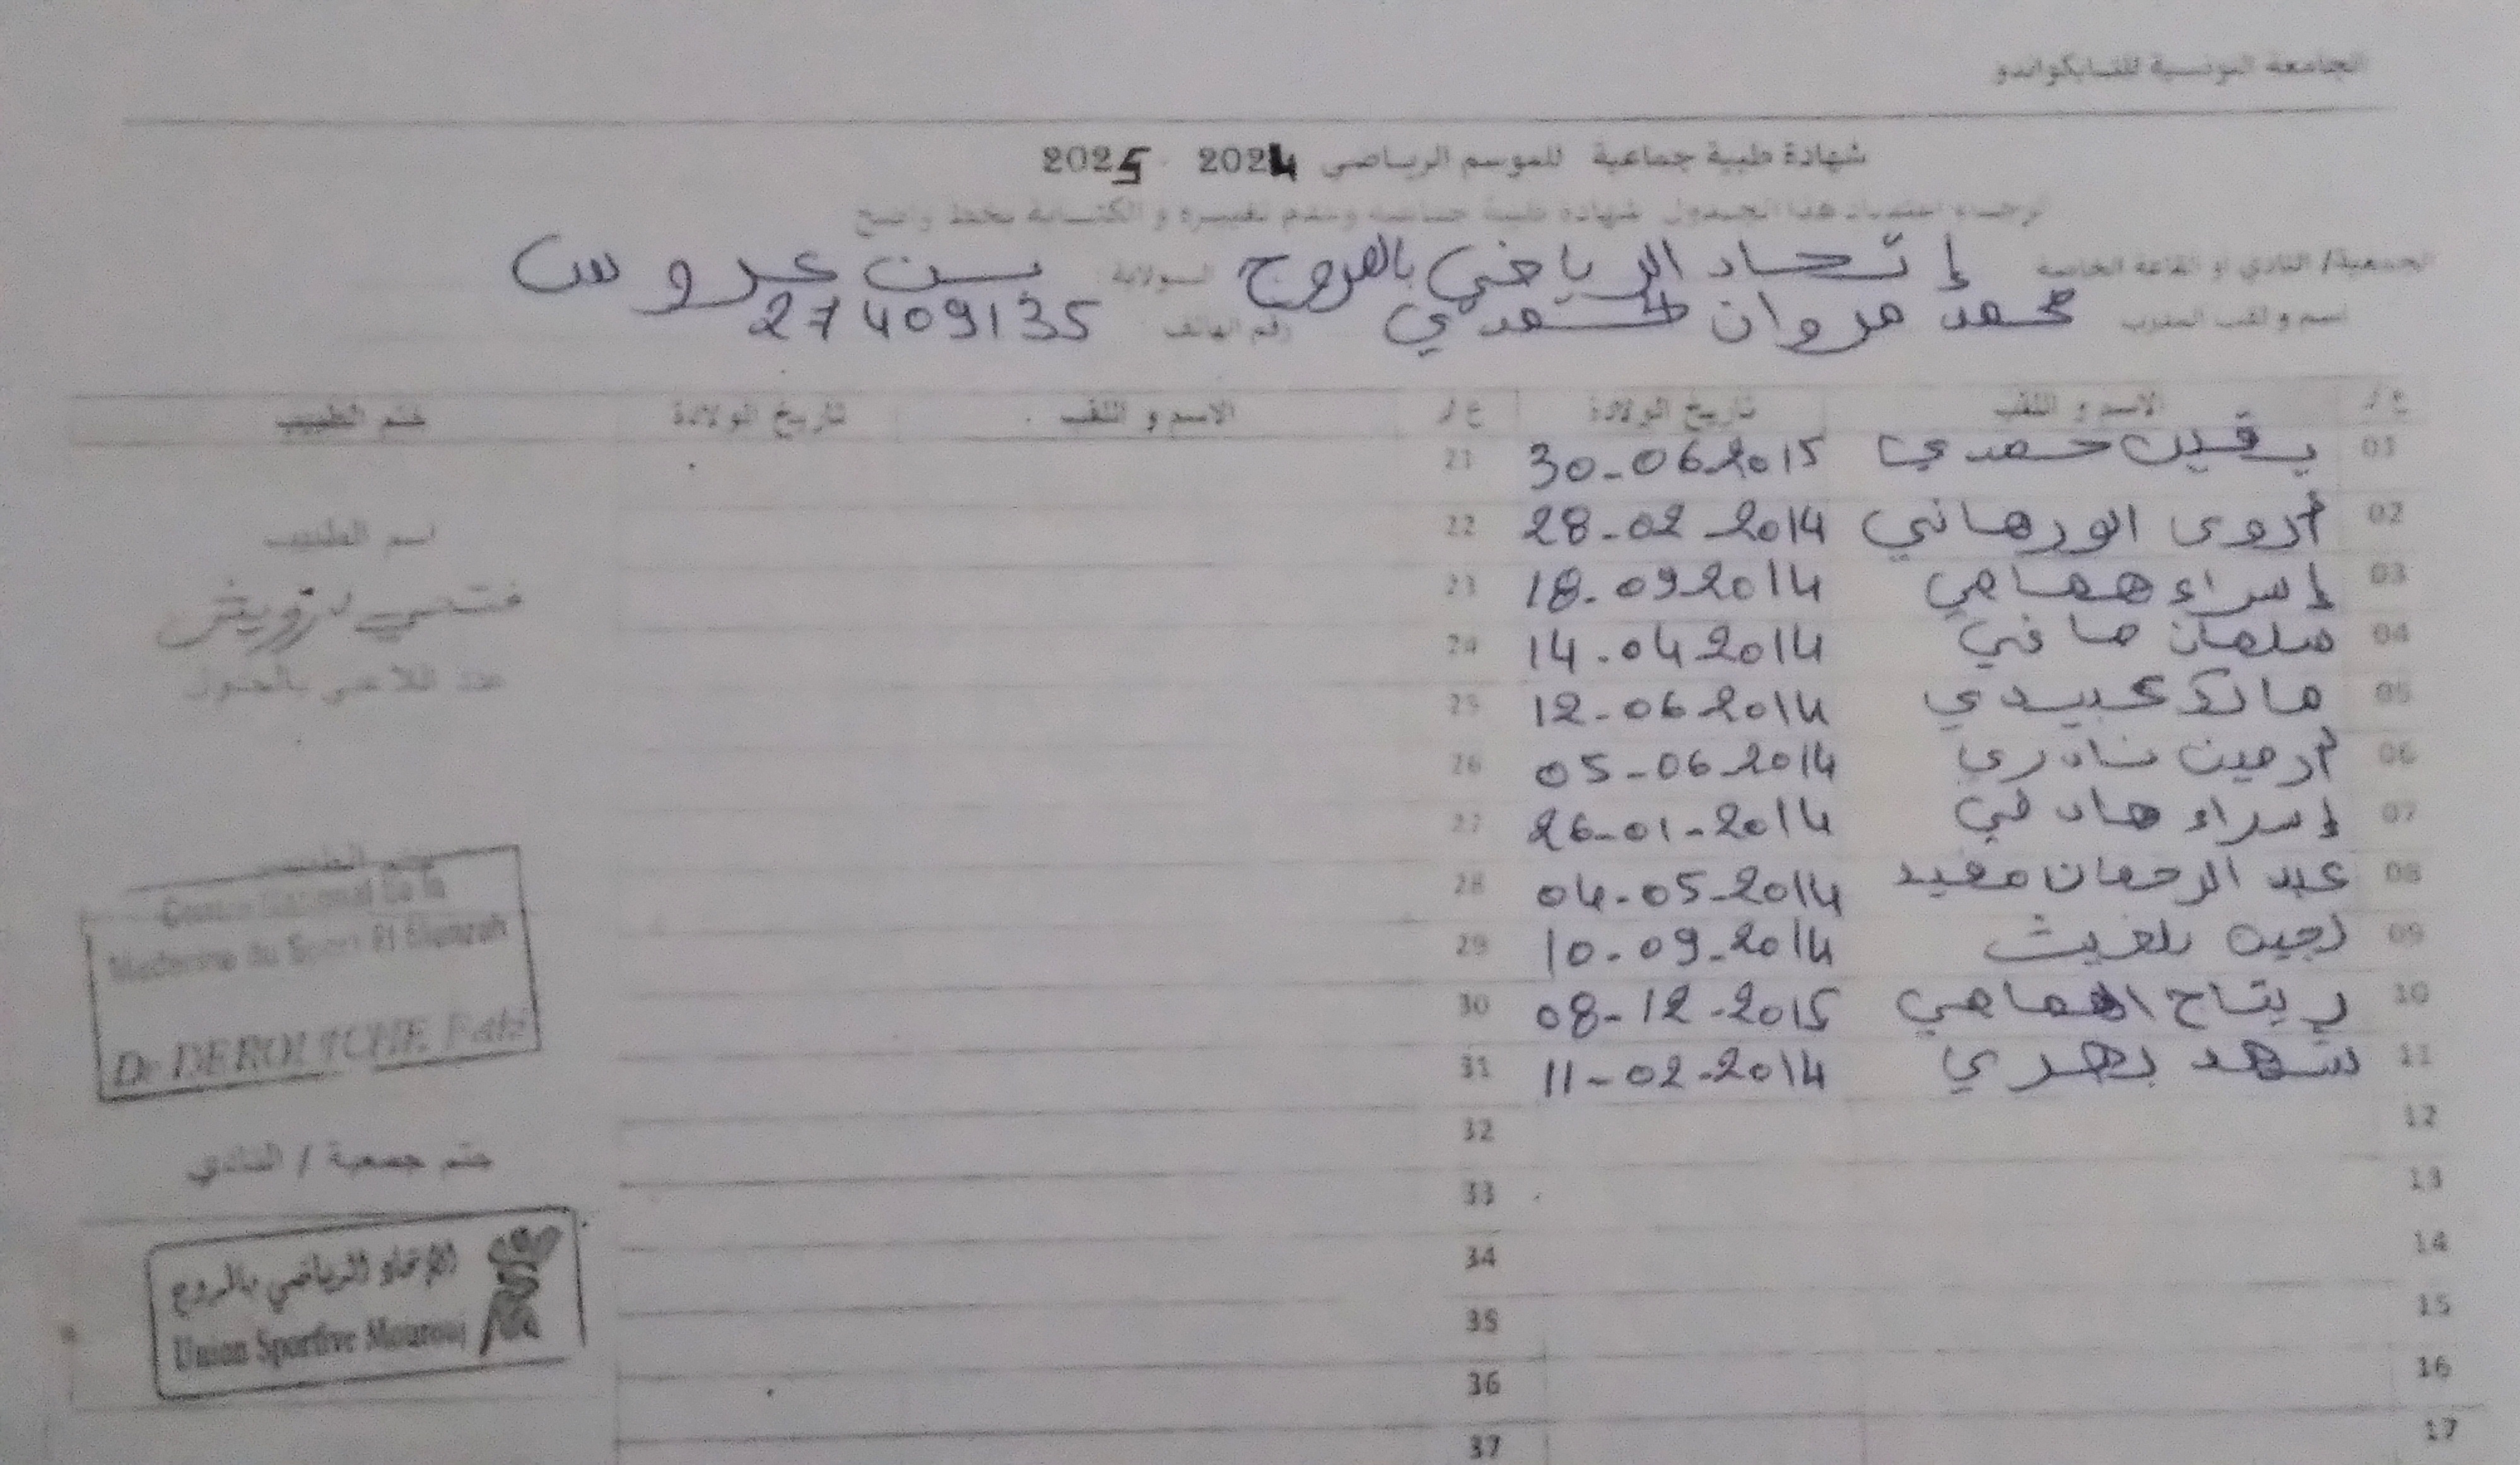 الجامعة التونسية للتايكواندو
شهادة طبية جماعية للموسم الرياضي 2024 2025
الرجاء اعتماد هذا الجدول شهادة طبية جماعية وعدم تغييره و الكتابة بخط واضح
الجمعية/ النادي او القاعة الخاصة إتحاد الرياضي بالمروج الولاية بن عروس
اسم و لقب المدرب محمد مروان حمدي رقم الهاتف 27409135
ع/د الاسم و اللقب تاريخ الولادة ع/د الاسم و اللقب تاريخ الولادة ختم الطبيب
01 يقين حمدي 30-06-2015 21
02 أروى الورهاني 28-02-2014 22
03 إسراء همامي 18-09-2014 23
04 سلمان صافي 14-04-2014 24
05 مالك عبيدي 12-06-2014 25
06 أرمين نادري 05-06-2014 26
07 إسراء هادفي 26-01-2014 27
08 عبد الرحمان مفيد 04-05-2014 28
09 لجين بلغيث 10-09-2014 29
10 ريتاج الهمامي 08-12-2015 30
11 شهد بحري 11-02-2014 31
12 32
13 33
14 34
15 35
16 36
17 37
اسم الطبيب
فتحي درويش
عدد اللاعبين بالجدول
ختم الطبيب
Centre National De la
Medecine du Sport El Menzah
Dr DEROUICHE Fathi
ختم جمعية / النادي
الإتحاد الرياضي بالمروج
Union Sportive Mourouj